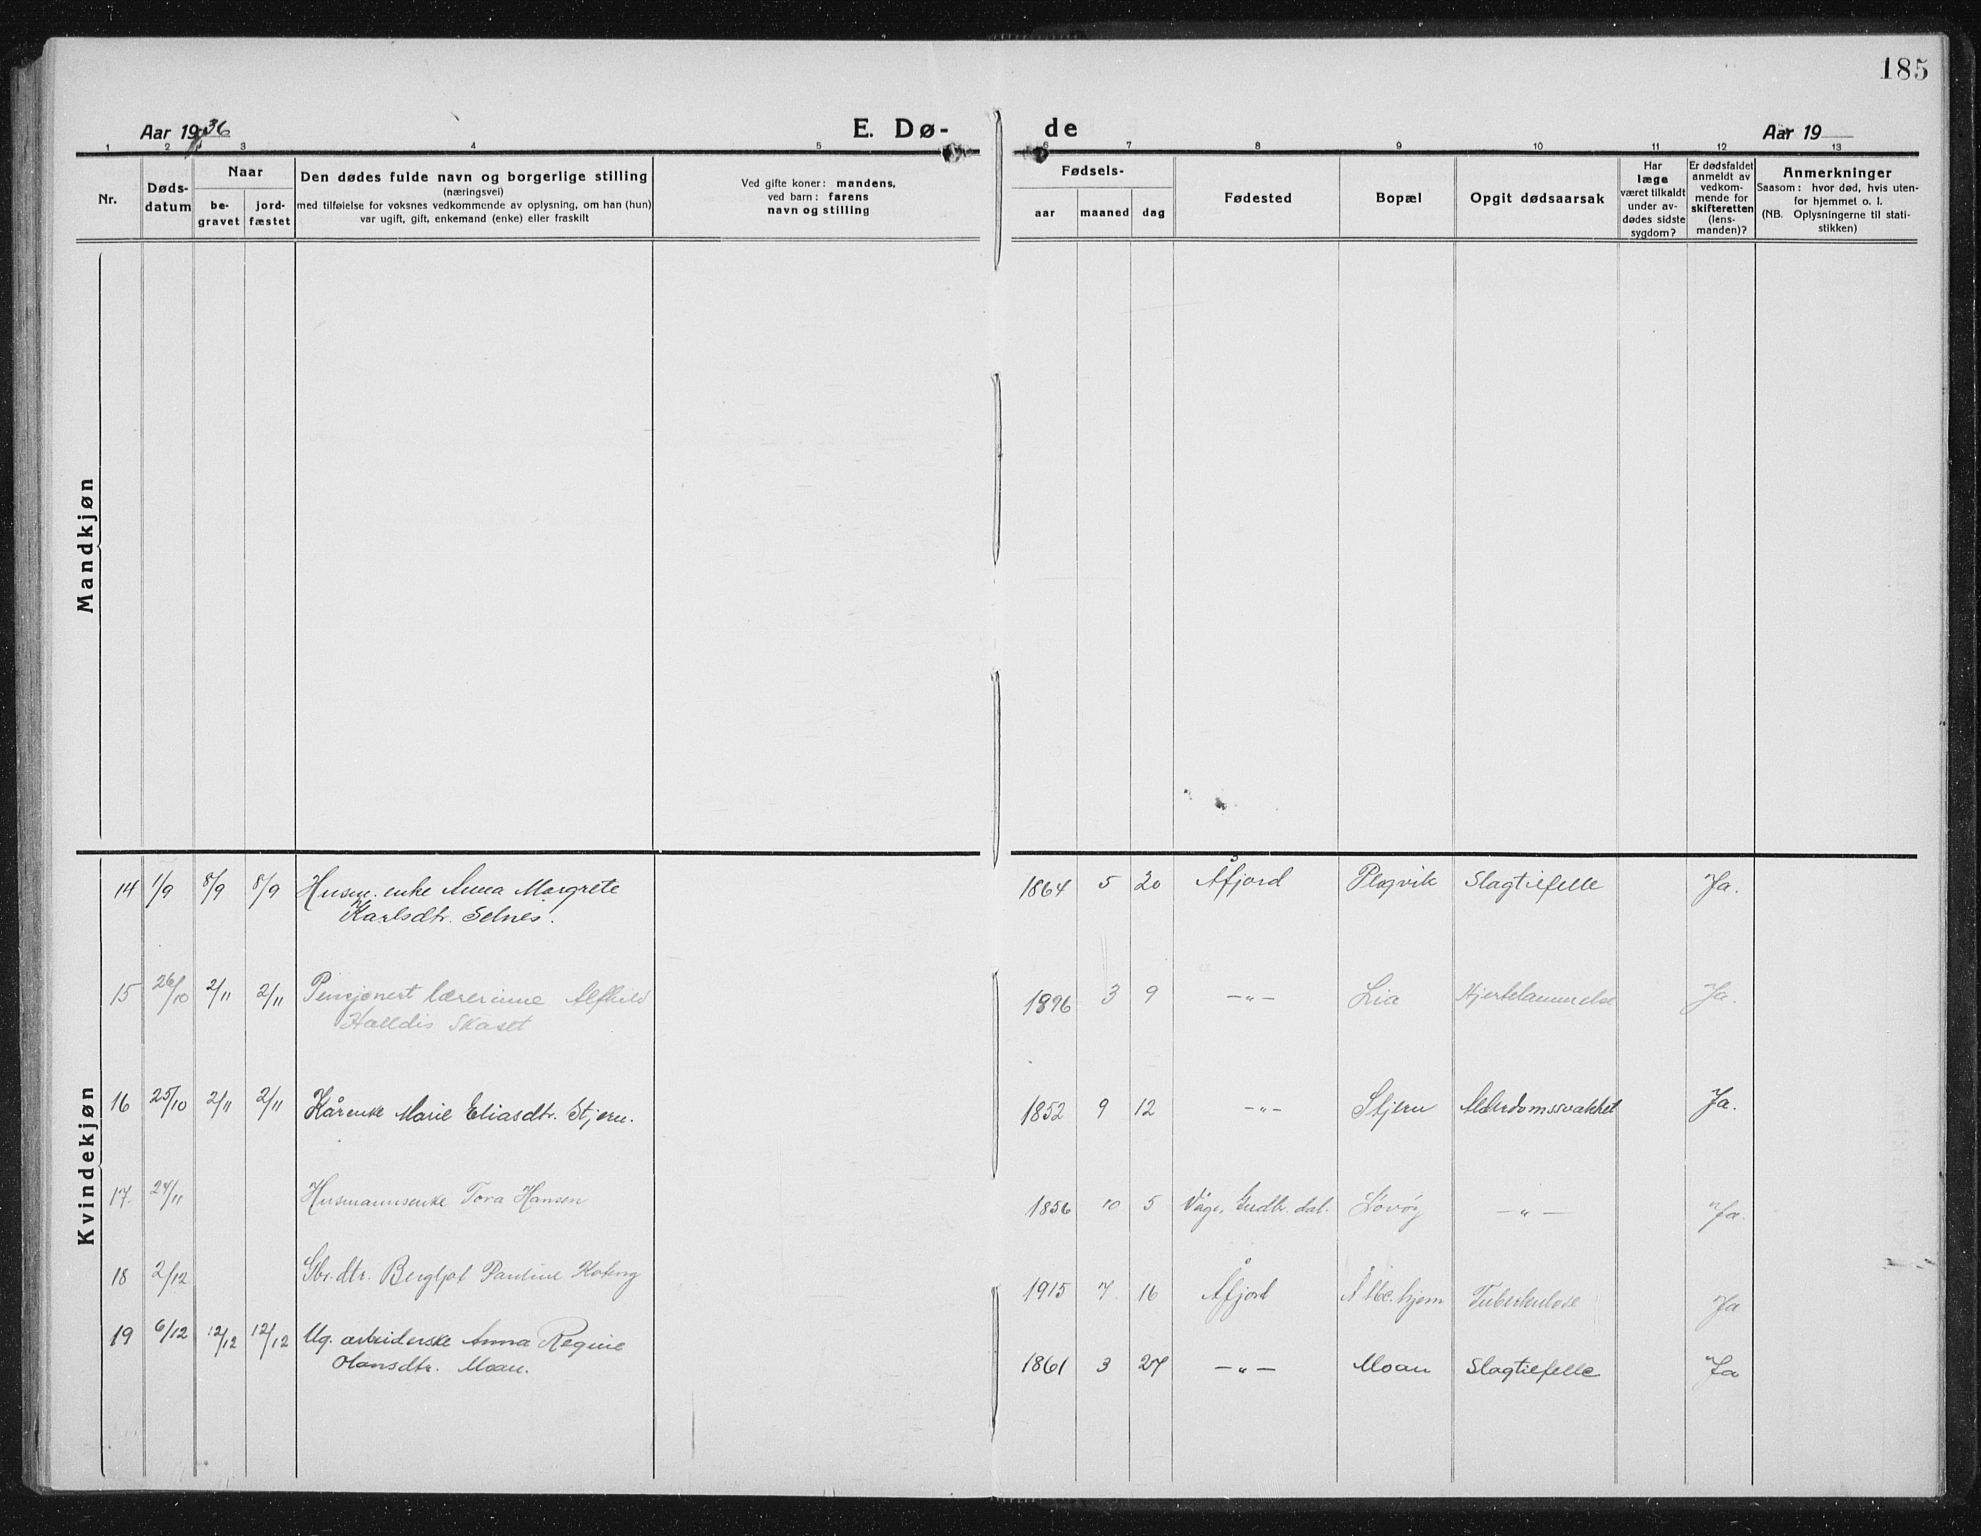 185
Aar 1936
E. Dø-
de
Aar 19
1 2 3 4 5 6 7 8 9 10 11 12 13
Nr.
Døds-
datum
Naar
be-
gravet
jord-
fæstet
Den dødes fulde navn og borgerlige stilling
(næringsvei)
med tilføielse for voksnes vedkommende av oplysning, om han (hun)
var ugift, gift, enkemand (enke) eller fraskilt
Ved gifte koner: mandens,
ved barn: farens
navn og stilling
Fødsels-
aar
maaned
dag
Fødested
Bopæl
Opgit dødsaarsak
Har
læge
været tilkaldt
under av-
dødes sidste
sygdom?
Er dødsfaldet
anmeldt av
vedkom-
mende for
skifteretten
(lens-
manden)?
Anmerkninger
Saasom: hvor død, hvis uten-
for hjemmet o. l.
(NB. Oplysningerne til stati-
stikken)
Mandkjøn
Kvindekjøn
14 1/9 8/9 8/9 Husm. enke Anna Margrete
Karlsdtr. Selnes.
1864 5 20 Åfjord Plagvik Slagtilfelle Ja.
15 26/10 2/11 2/11 Pensjonert lærerinne Alfhild
Halldis Skaset
1896 3 9 -"- Lia Hjertelammelse Ja.
16 25/10 2/11 2/11 Kårenke Marie Eliasdtr. Stjern.
1852 9 12 -"- Stjern Alderdomssvakhet Ja.
17. 24/11 Husmannsenke Tora Hansen
1856 10 5 Våge, Gudbr. dal. Løvøy -"- Ja.
18 2/12 Gbr. dtr. Bergljot Pauline Koteng
1915 7 16 Åfjord Å tbc. hjem Tuberkulose Ja
19 6/12 12/12 12/12 Ug. arbeiderske Anna Regine
Olansdtr. Moan.
1861 3 27 -"- Moan Slagtilfelle Ja